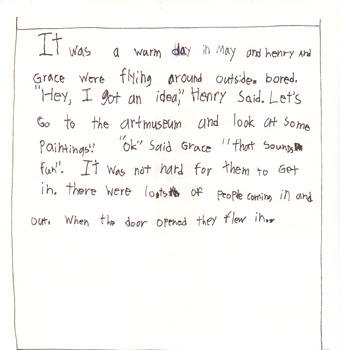 It was a warm day in May and henry And
Grace were flying around outside. bored.
"Hey, I got an idea," Henry Said. Let's
Go to the artmuseum and look at some
Paintings." "Ok" Said Grace "that sounds
fun". It was not hard for them to Get
in. there were lots of people coming in and
out. When the door opened they flew in..